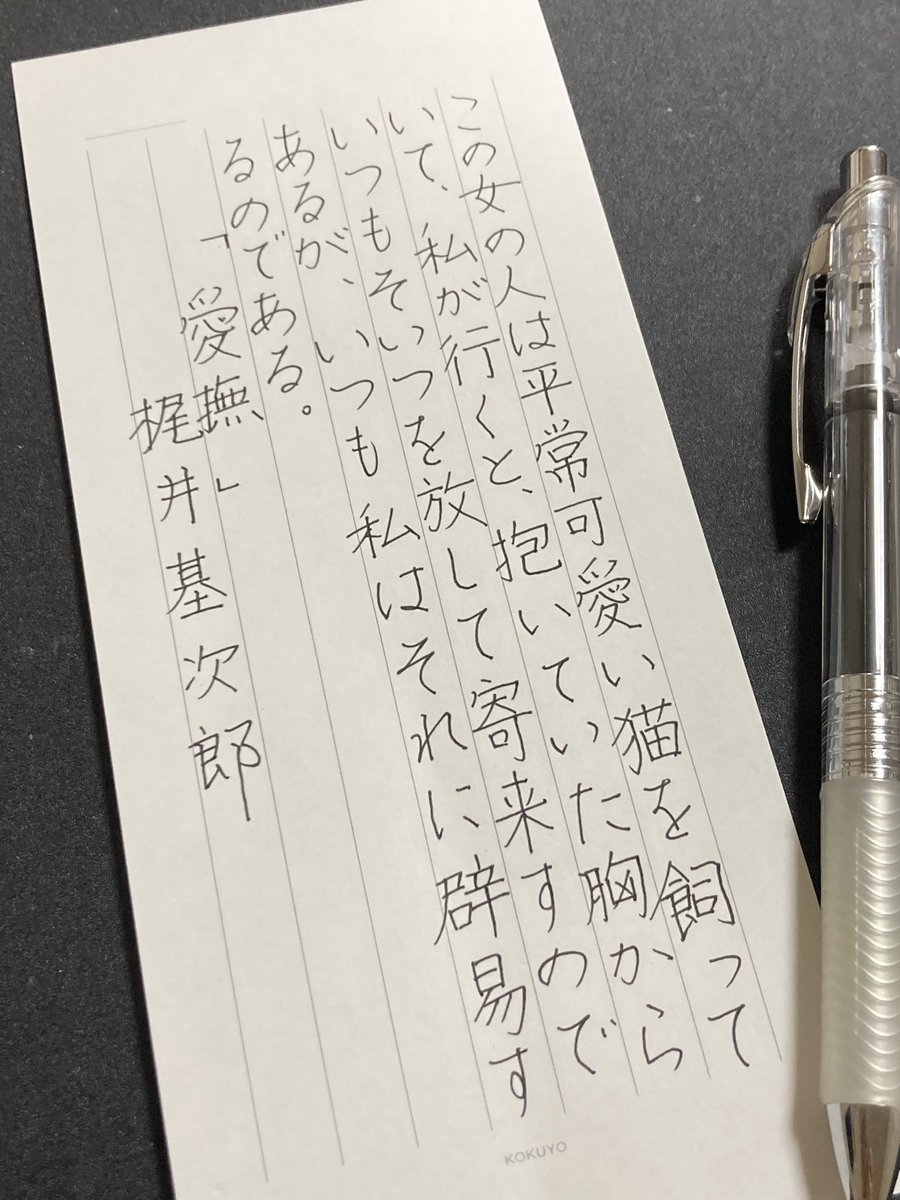 この女の人は平常可愛い猫を飼って
いて、私が行くと、抱いていた胸から
いつもそいつを放して寄来すので
あるが、いつも私はそれに辟易す
るのである。
「愛撫」
梶井基次郎
KOKUYO